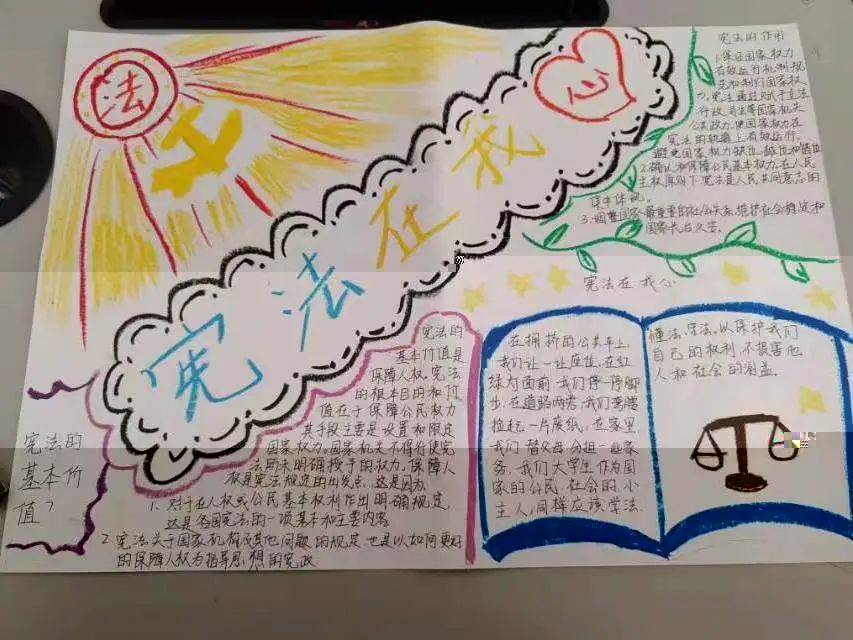 法
宪法在我心
宪法的作用
1.保证国家权力
有效运行,机制规
范和制约国家权
力,宪法通过赋予立法
行政,司法等国家机关
公法政力,使国家权力在
宪法的轨道上有效运行,
避免国家权力缺位,越位和错位
2.确认和保障公民基本权力,在人民
主权原则下宪法是人民共同意志的
集中体现。
3.调整国家最重要的社会关系,维护社会稳定和
国家长治久安。
宪法在我心
在拥挤的公共车上,
我们让一让座位,在红
绿灯面前,我们停一停脚
步,在道路两旁,我们弯腰
捡起一片废纸,在家里,
我们替父母分担一些家
务,我们大学生作为国
家的公民,社会的小
主人,同样应该学法
懂法,守法,以保护我们
自己的权利,不损害他
人和社会的利益。
宪法的
基本价
值?
宪法的
基本价值是
保障人权,宪法
的根本目的和价
值在于保障公民权力
其手段主要是设置和限定
国家权力,国家机关不得行使宪
法所未明确授予的权力,保障人
权是宪法规定的出发点,这是因为
1.对于在人权或公民基本权利作出明确规定,
这是各国宪法的一项基本和主要内容
2.宪法关于国家机构及其他问题的规定也是以如何更好
的保障人权为指导思想的宪政